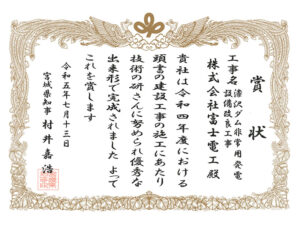 賞状
工事名 漆沢ダム非常用発電
設備改良工事
株式会社富士電工殿
貴社は令和四年度における
頭書の建設工事の施工にあたり
技術の研さんに努められ優秀な
出来形で完成されました よって
これを賞します
令和五年七月十三日
宮城県知事 村井嘉浩